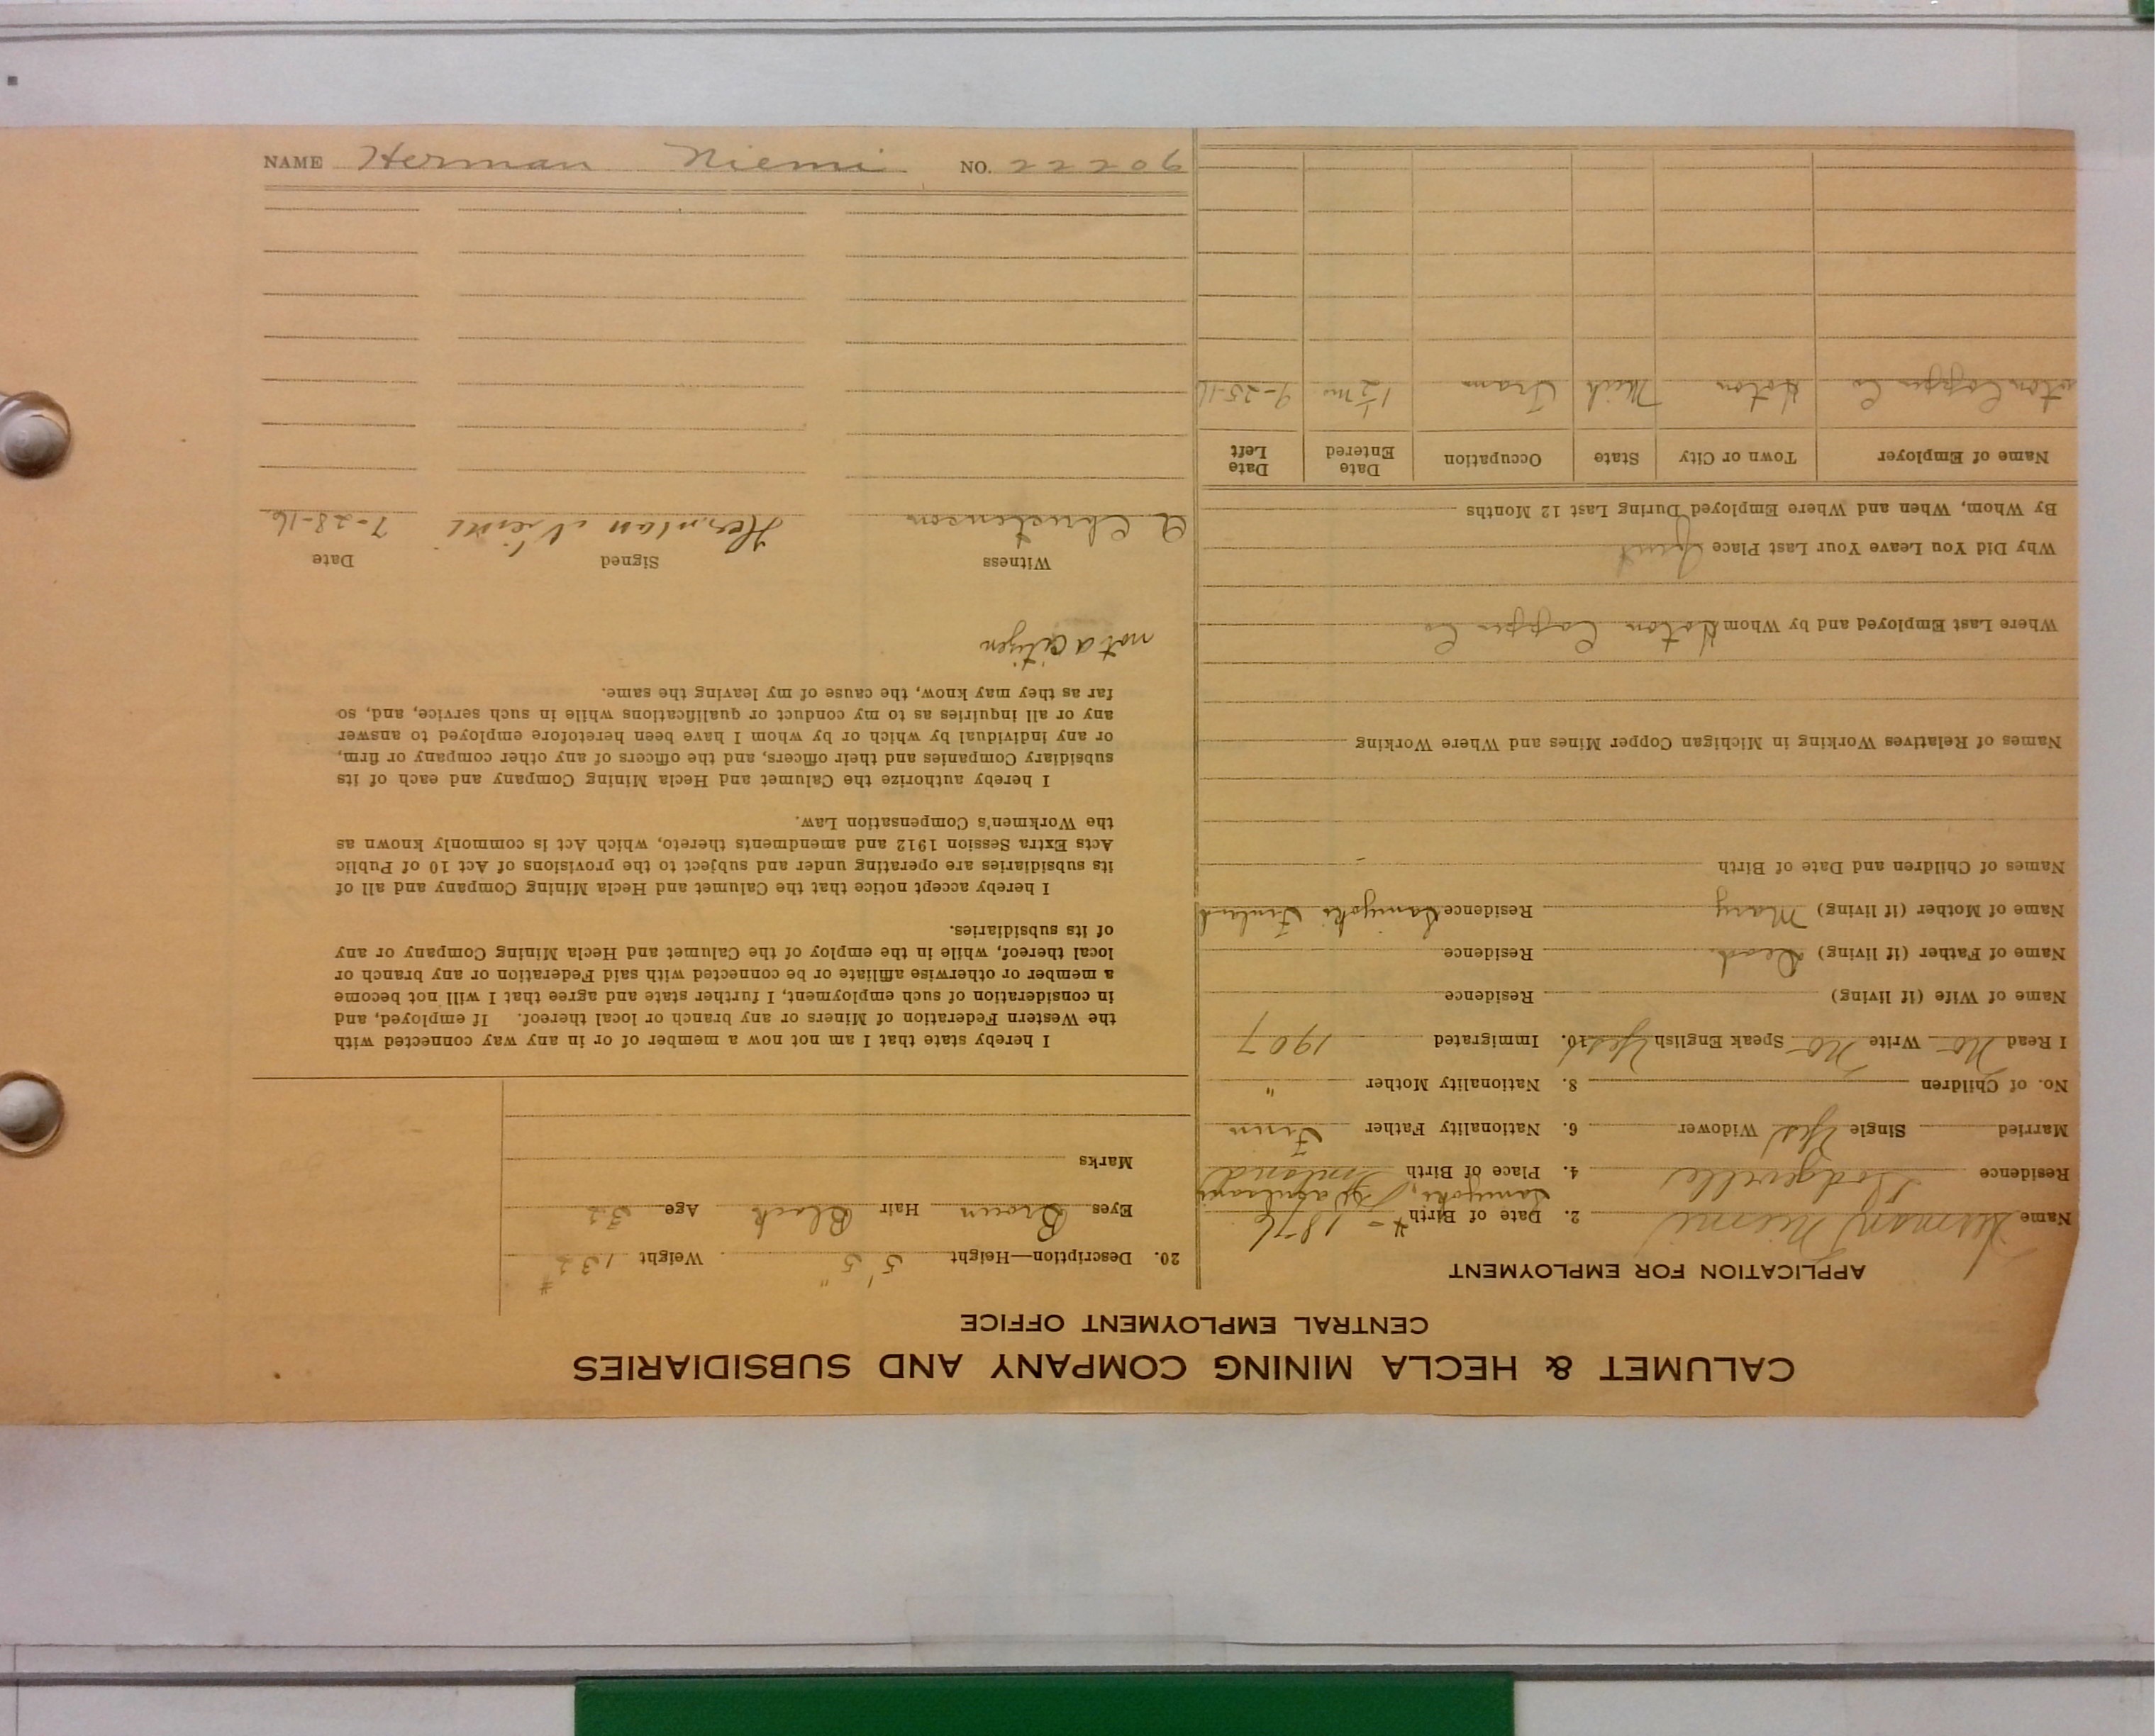 NAME Herman Niemi NO. 22206
CALUMET & HECLA MINING COMPANY AND SUBSIDIARIES
CENTRAL EMPLOYMENT OFFICE
APPLICATION FOR EMPLOYMENT
Name Herman Niemi 2. Date of Birth 1876
Residence Dodgeville 4. Place of Birth Finland
Married Single Yes Widower 6. Nationality Father Finn
No. of Children 8. Nationality Mother "
I Read No Write No Speak English Yes 10. Immigrated 1907
Name of Wife (if living) Residence
Name of Father (if living) Dead Residence
Name of Mother (if living) Mary Residence Finland
Names of Children and Date of Birth
Names of Relatives Working in Michigan Copper Mines and Where Working
Where Last Employed and by Whom Hoton Copper Co
Why Did You Leave Your Last Place Quit
By Whom, When and Where Employed During Last 12 Months
Name of Employer Town or City State Occupation Date Entered Date Left
oton Copper Co Hoton Mich Tram 1½ mo
20. Description—Height 5' 5" Weight 132 #
Eyes Brown Hair Black Age 32
Marks
I hereby state that I am not now a member of or in any way connected with
the Western Federation of Miners or any branch or local thereof. If employed, and
in consideration of such employment, I further state and agree that I will not become
a member or otherwise affiliate or be connected with said Federation or any branch or
local thereof, while in the employ of the Calumet and Hecla Mining Company or any
of its subsidiaries.
I hereby accept notice that the Calumet and Hecla Mining Company and all of
its subsidiaries are operating under and subject to the provisions of Act 10 of Public
Acts Extra Session 1912 and amendments thereto, which Act is commonly known as
the Workmen's Compensation Law.
I hereby authorize the Calumet and Hecla Mining Company and each of its
subsidiary Companies and their officers, and the officers of any other company or firm,
or any individual by which or by whom I have been heretofore employed to answer
any or all inquiries as to my conduct or qualifications while in such service, and, so
far as they may know, the cause of my leaving the same.
not a citizen
Witness Signed Date
A Christenson Herman Niemi 7-28-16